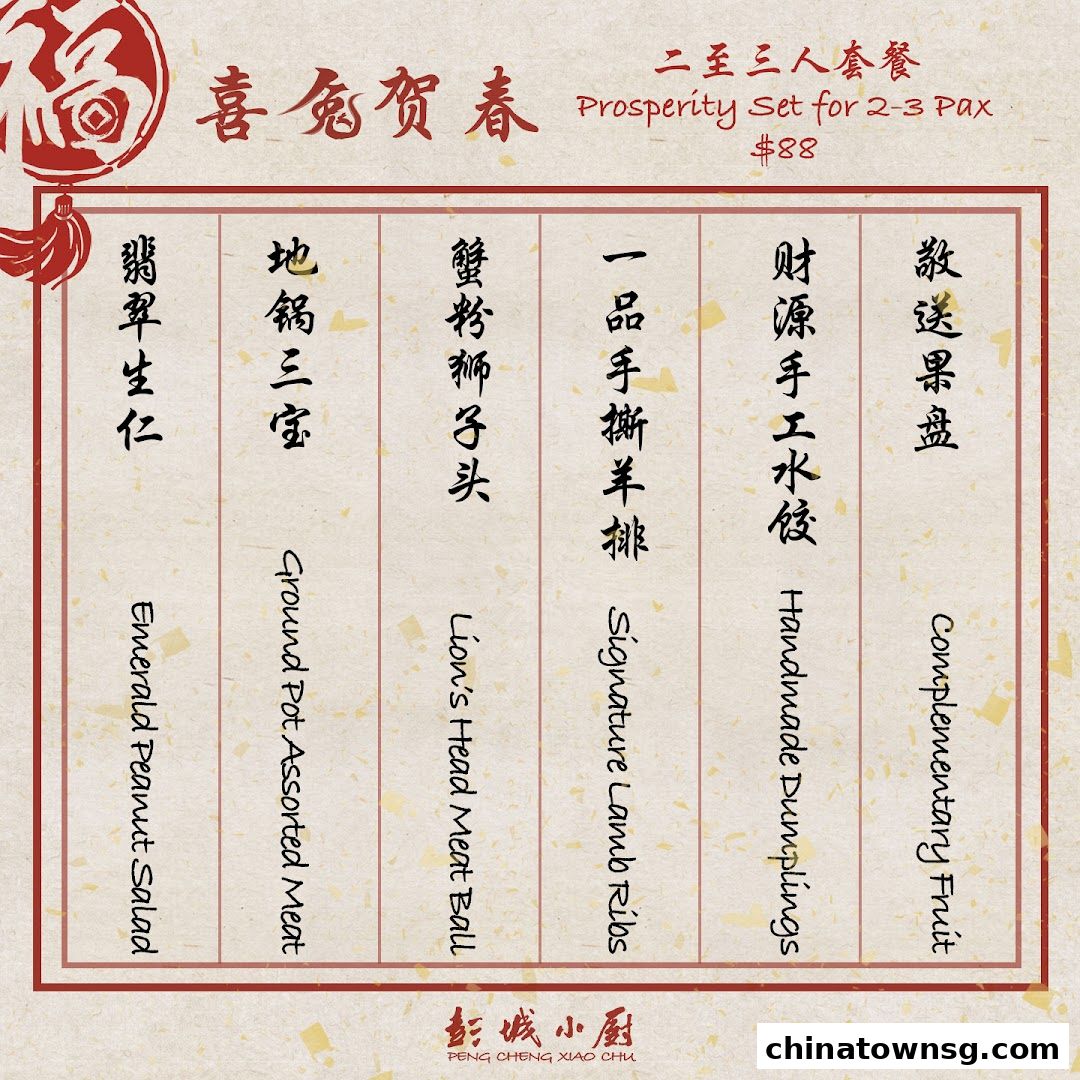 福
喜兔贺春
二至三人套餐
Prosperity Set for 2-3 Pax
$88
翡翠生仁
Emerald Peanut Salad
地锅三宝
Ground Pot Assorted Meat
蟹粉狮子头
Lion's Head Meat Ball
一品手撕羊排
Signature Lamb Ribs
财源手工水饺
Handmade Dumplings
敬送果盘
Complementary Fruit
彭城小厨
PENG CHENG XIAO CHU
chinatownsg.com